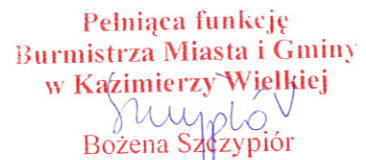 Pełniąca funkcję
Burmistrza Miasta i Gminy
w Kazimierzy Wielkiej
Szczypiór
Bożena Szczypiór